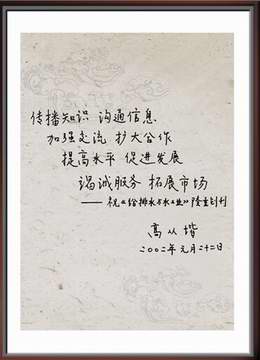 传播知识 沟通信息
加强交流 扩大合作
提高水平 促进发展
竭诚服务 拓展市场
——祝《给排水与水工业》隆重创刊
高从堦
二〇〇二年元月二十二日